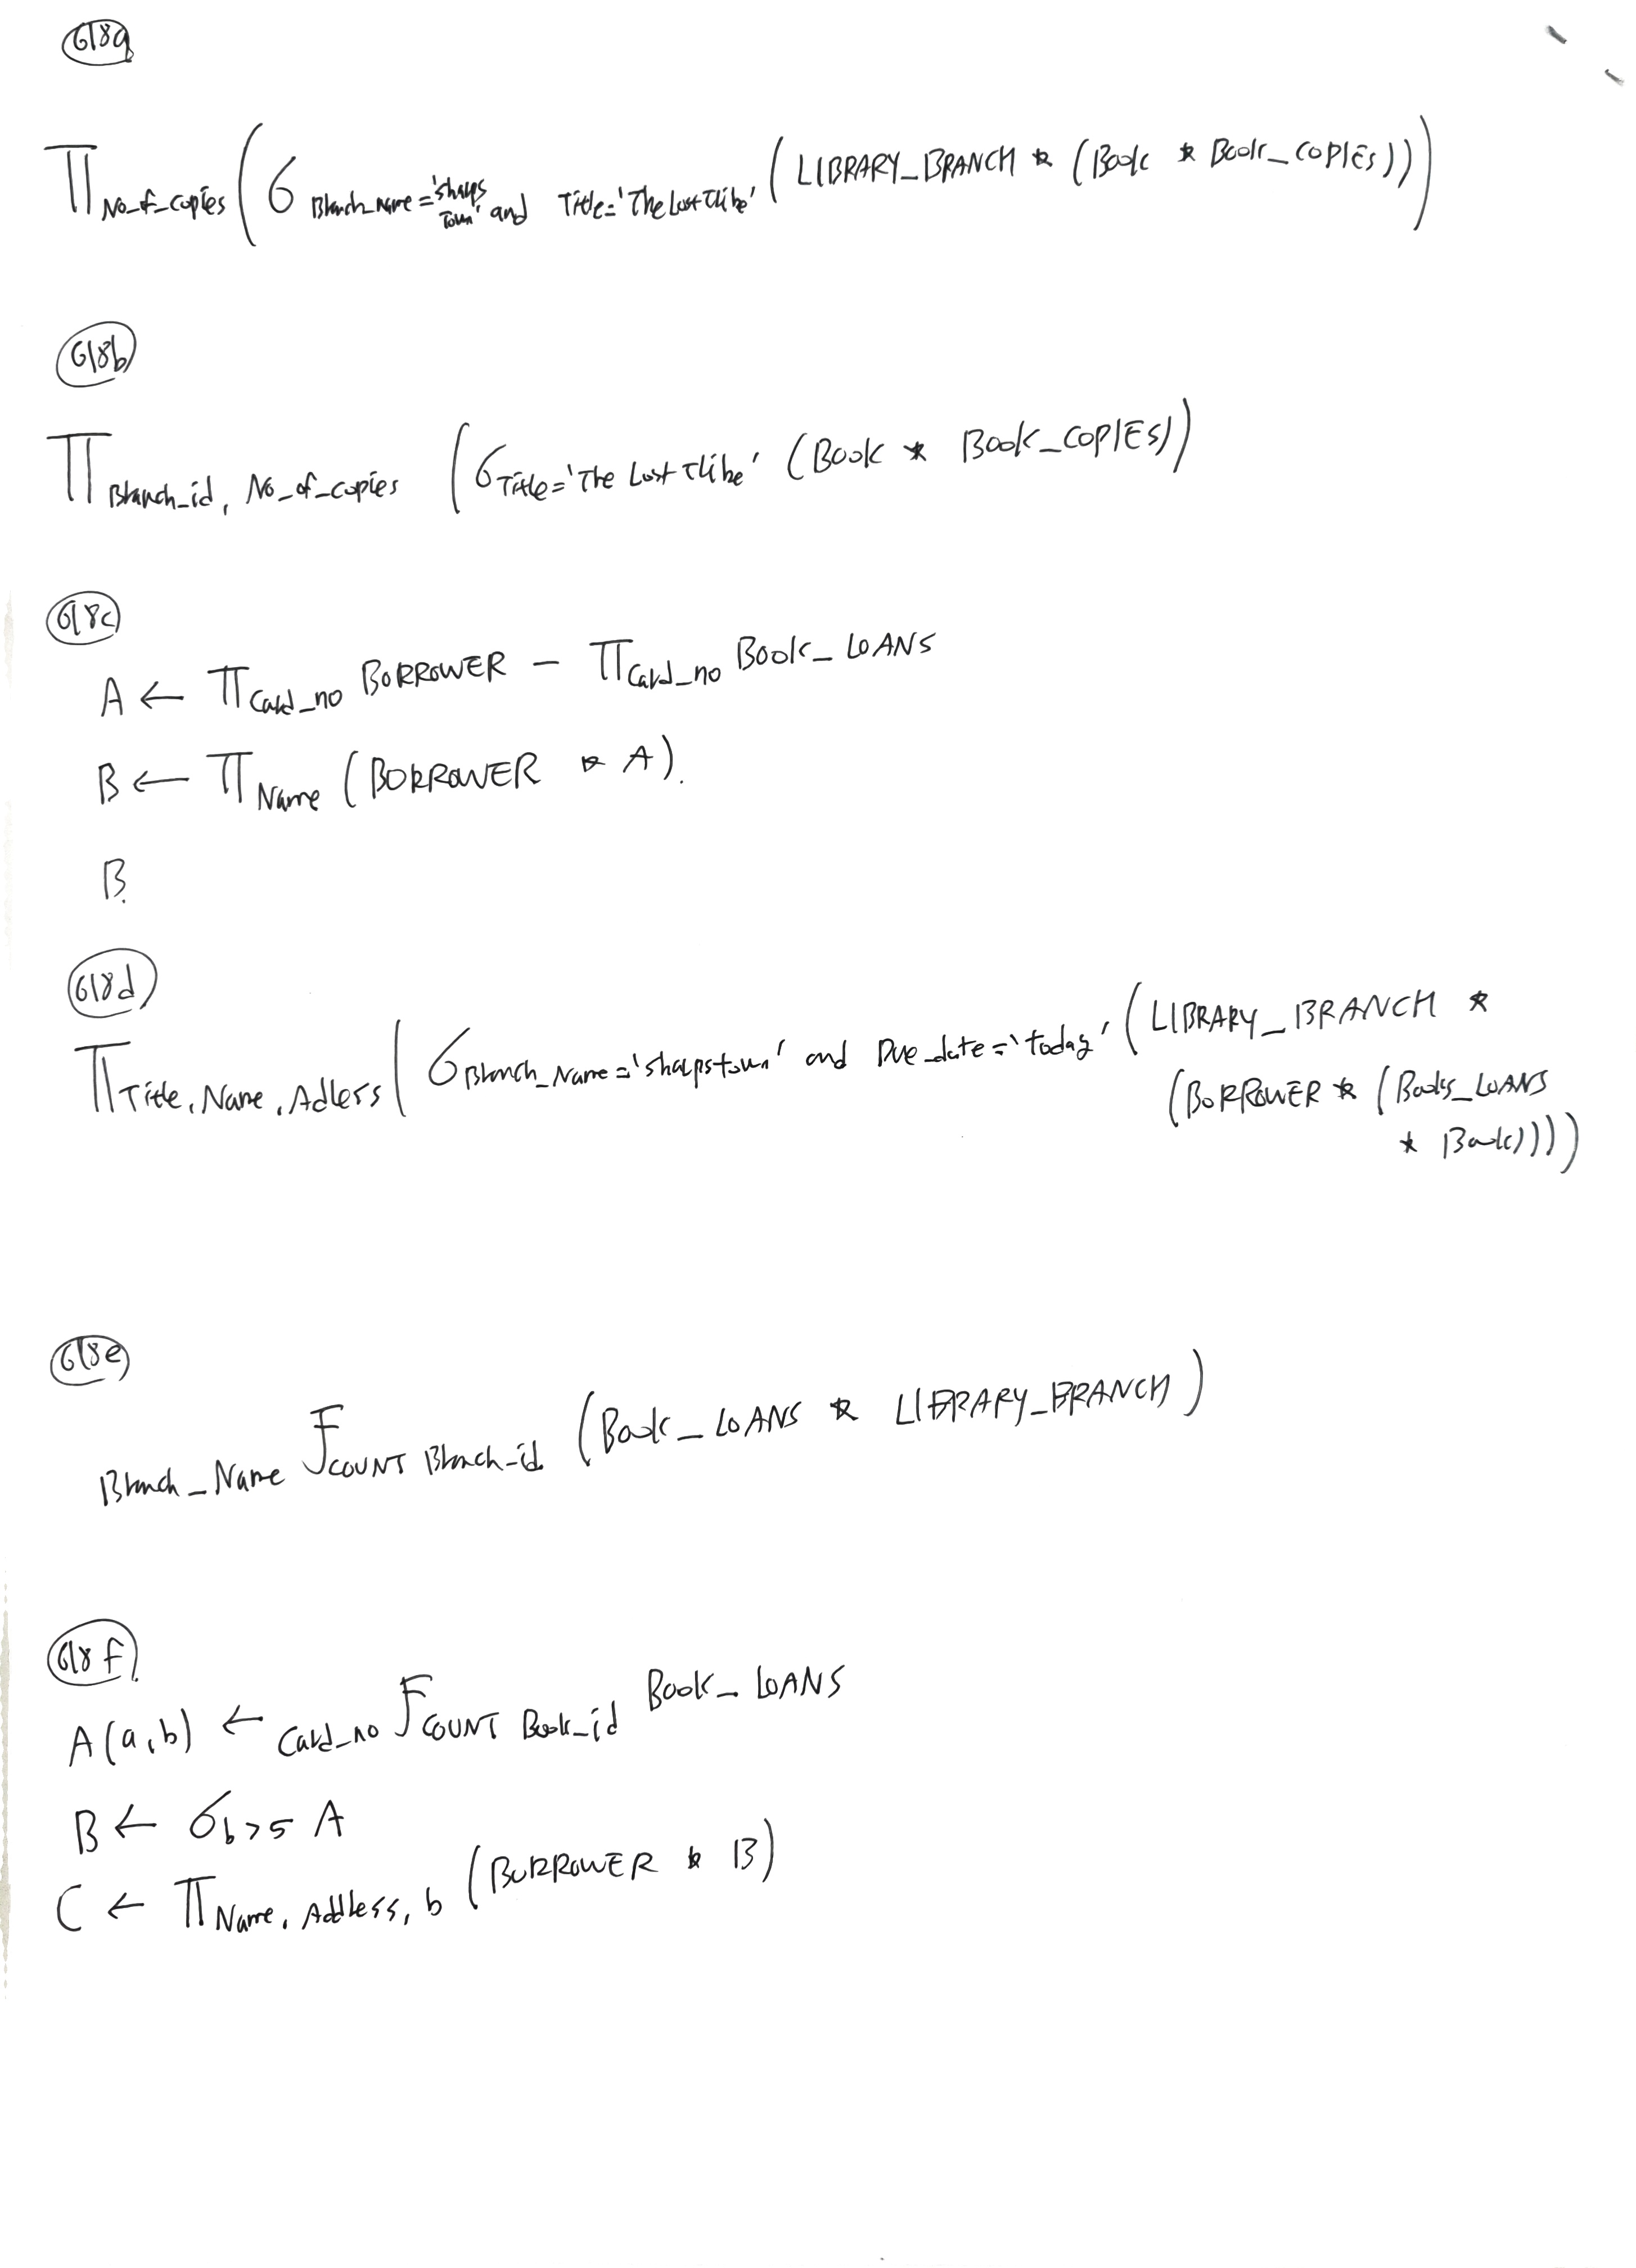 618a
π No_of_copies (σ Branch_name='sharps town' and Title='The Lost Tribe' (LIBRARY_BRANCH * (Book * Book_COPIES)))
618b
π Branch_id, No_of_copies (σ Title='The Lost Tribe' (BOOK * BOOK_COPIES))
618c
A ← π Card_no BORROWER - π Card_no Book_LOANS
B ← π Name (BORROWER * A).
B.
618d
π Title, Name, Address (σ Branch_Name='sharpstown' and Due_date='today' (LIBRARY_BRANCH *
(BORROWER * (Books_LOANS
* Book))))
618e
Branch_Name F COUNT Branch_id (Book_LOANS * LIBRARY_BRANCH)
618f.
A(a,b) ← Card_no F COUNT Book_id Book_LOANS
B ← σ b>5 A
C ← π Name, Address, b (BORROWER * B)